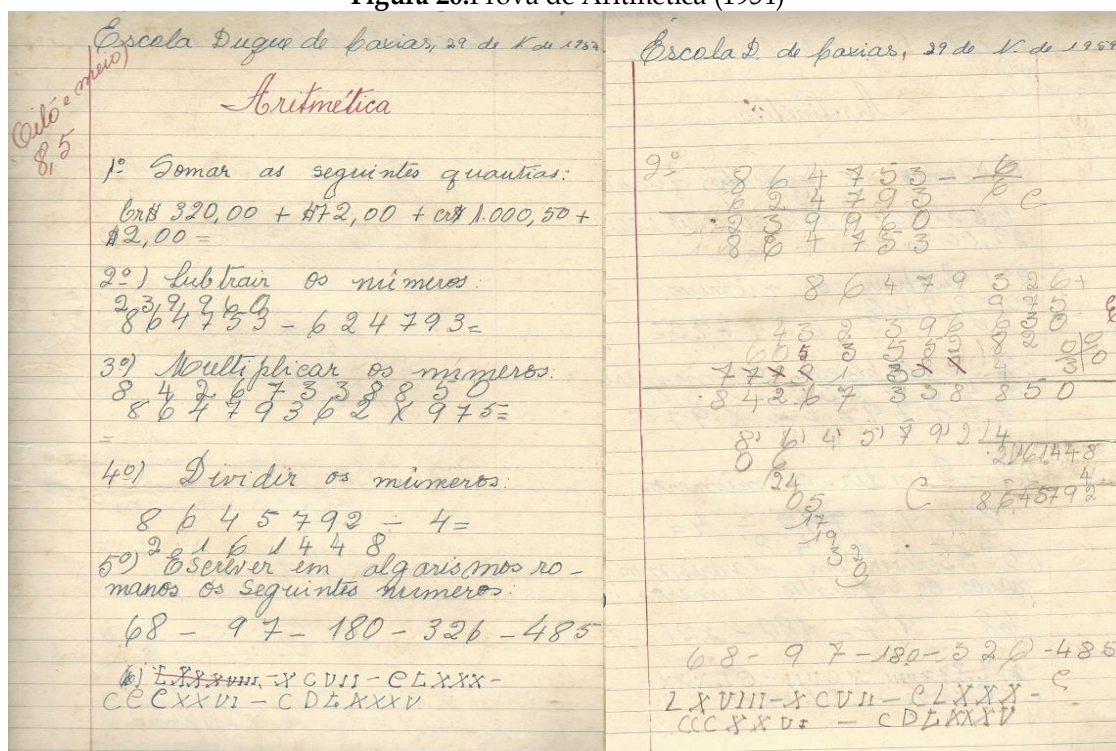 Figura 20.Prova de Aritmética (1954)
Escola Duque de Caxias, 29 de V de 1954.
Oito e meio
8,5
Aritmética
1º Somar as seguintes quantias:
Cr$ 320,00 + $72,00 + cr$ 1.000,50 +
$2,00 =
2º) Subtrair os números:
239960
864753 - 624793=
3º) Multiplicar os números:
8 4 2 6 7 3 3 8 8 5 0
8 6 4 7 9 3 6 2 X 975=
=
4º) Dividir os números:
8 6 4 5 7 9 2 ÷ 4=
2 1 6 1 4 4 8
5º) Escrever em algarismos ro-
manos os seguintes números:
68 - 97 - 180 - 326 - 485
XCVII - CLXXX-
CCCXXVI - CDLXXXV
Escola D. de Caxias, 29 de V. de 1954
2º
8 6 4 7 5 3 - 6
6 2 4 7 9 3 6
C
2 3 9 9 6 0
8 6 4 7 5 3
8 6 4 7 9 3 2 6+
8 4 2 6 7 3 3 8 8 5 0
8 6 4 5 7 9 2 4
0 6
24
05
17
19
32
0
2161448
4
C
8645792
68 - 97 - 180 - 326 - 485
LXVIII - XCVII - CLXXX -
C
CCCXXVI - CDLXXXV